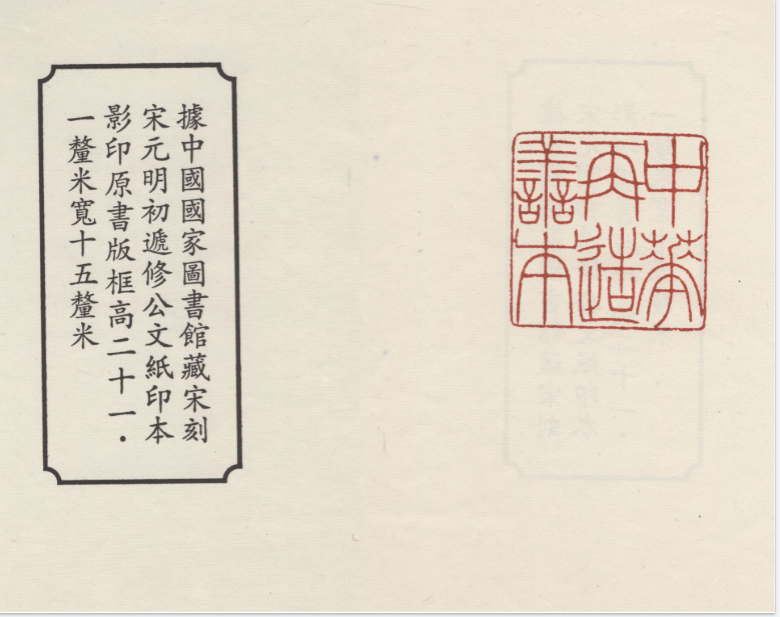 中華
再造
善本
據中國國家圖書館藏宋刻
宋元明初遞修公文紙印本
影印原書版框高二十一·
一釐米寬十五釐米